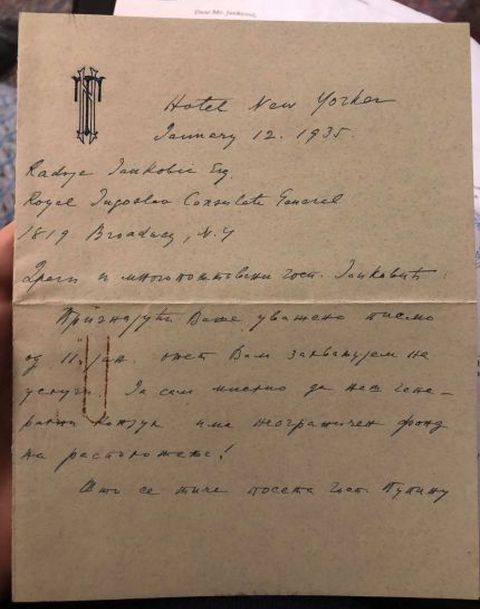 Dear Mr. Jankovic,
Hotel New Yorker
January 12. 1935.
Radoje Jankovic Esq.
Royal Jugoslav Consulate General
1819 Broadway, N.Y
Драги и многопоштовани госп. Јанковић:
Признајући Ваше уважено писмо
од 11. јан. опет Вам захваљујем на
услузи. Ја сам мислио да наш гене-
рални конзул има неограничен фонд
на расположењу!
Што се тиче посета госп. Пупину